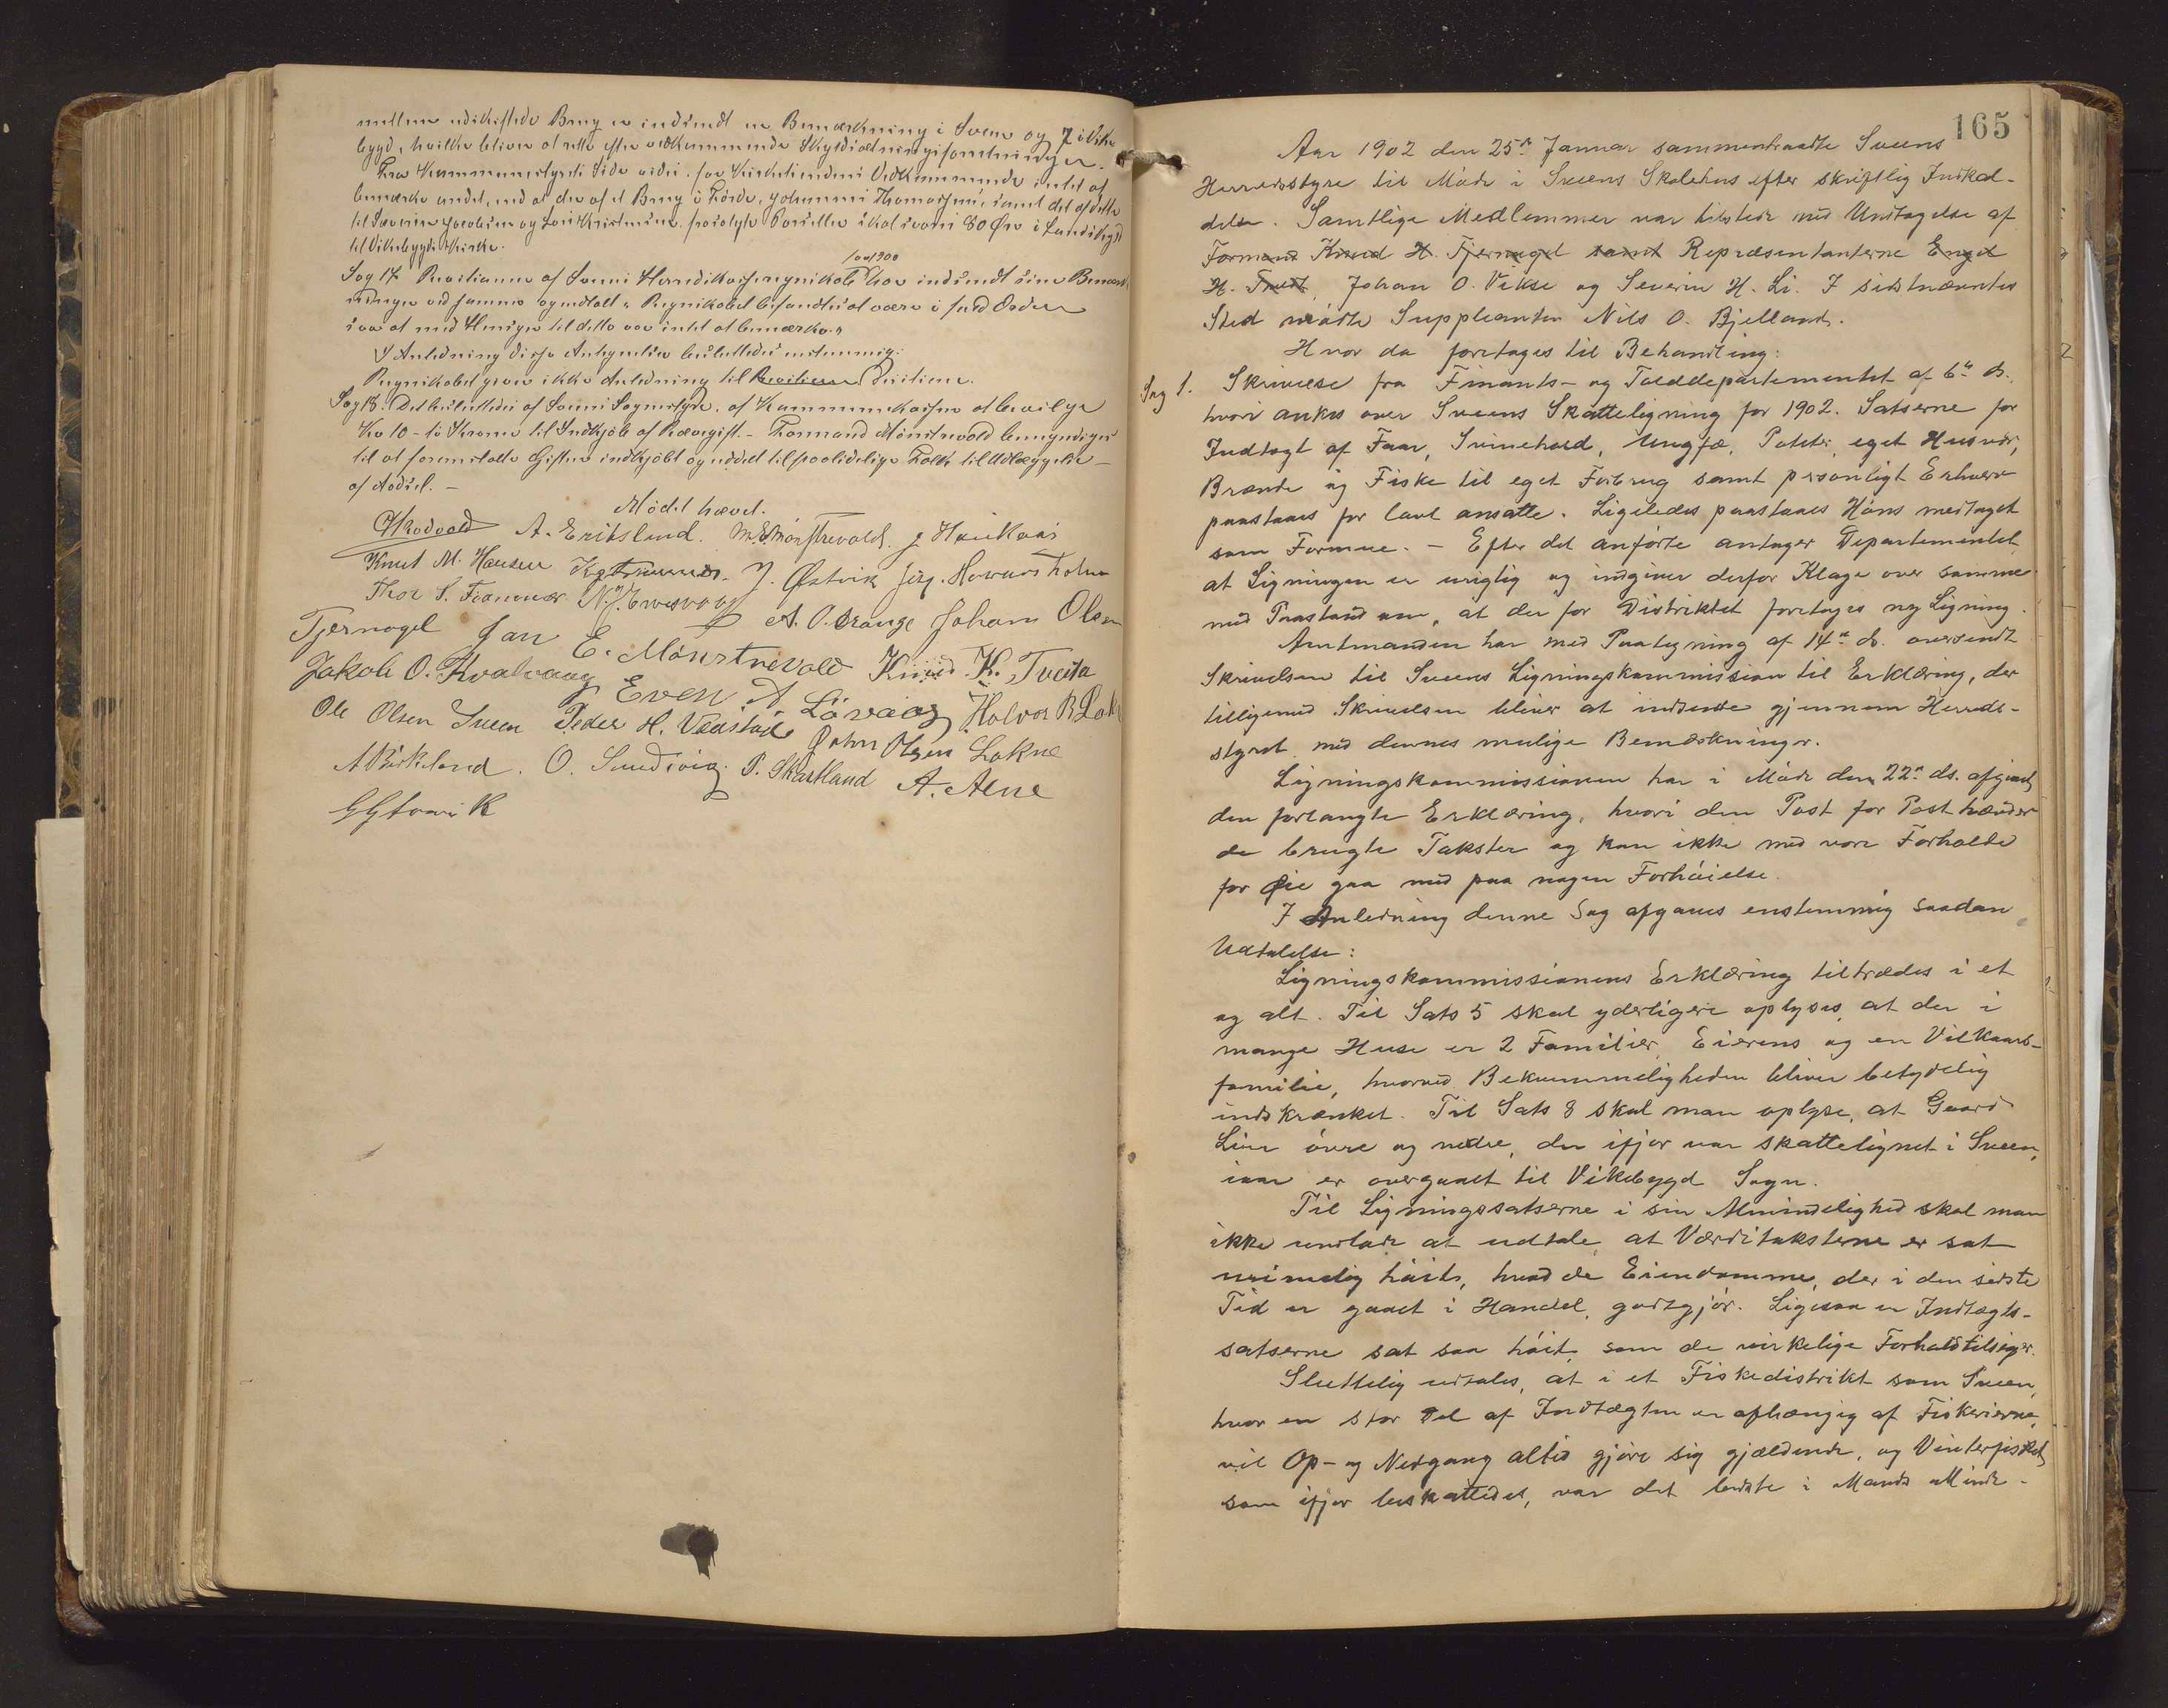 mellem udskiftede Brug er indsendt en Bemærkning i Sveen og 7 i Vike
bygd, hvilke bliver at rette efter vedkommende Skyldsætningsforretninger.
Fra Kommunestyrets Side vides for Kirketiendens Vedkommende intet at
bemærke andet, end at der af et Brug i Førde, Johannes Thomassens, samt det af dette
til Severin Jacobsen og Lars Kristensen frasolgte Parseller skal svares 80 Øre i
til Vikebygds Kirke.
for 1900
Sag 17 Revisionen af Sveens Herredskasseregnskab har indsendt sine Bemærk
ninger ved samme og udtalt: "Regnskabet befandtes at være i fuld Orden
saa at med Hensyn til dette var intet at bemærke."
I Anledning disse Antegnelser besluttedes enstemmig:
Regnskabet giver ikke Anledning til Revision Decision.
Sag 18. Det besluttedes af Sveens Sognestyre, af Kommunekassen at bevilge
Kr 10 - ti Kroner til Indkjøb af Rævegift. - Formand Mönstrevold bemyndiges
til at foranstalte Giften indkjøbt og uddelt til paalidelige Folk til Udlæggelse
af Aadsel. -
Mödet hævet.
A. Eritsland. M. E. Mönstrevold. J Haukaas
Knut M. Hansen J. Østvik Jørg. Howarsholm
Thor S. Framnæs
Tjernagel Jan A. O. Orange Johan Olsen
E. Mönstrevold Knud K. Tveita
Jakob O. Kvalvaag Even A Lövaag Halvor B Lok
Ole Olsen Sveen Peder H. Vaastad John Olsen Lokne
A Birkeland. O. Sundsvig. P. Skartland A. Alne
165
Aar 1902 den 25de Januar sammentraadte Sveens
Herredsstyre til Möde i Sveens Skolehus efter skriftlig Indkal-
delse. Samtlige Medlemmer var tilstede med Undtagelse af
Formand Knud H. Tjernagel samt Repræsentanterne Engel
H. Tveit, Johan O. Vikse og Severin H. Li. I sidstnævntes
Sted mödte Suppleanten Nils O. Bjelland.
Hvor da foretages til Behandling:
Sag 1. Skrivelse fra Finants- og Tolddepartementet af 6te ds.
hvori ankes over Sveens Skatteligning for 1902. Satserne for
Indtægt af Faar, Svinehold, Ungfæ, Potet, eget Husvær,
Brænde og Fiske til eget Forbrug samt personligt Erhverv
paastaaes for lavt ansatte. Ligeledes paastaaes Höns medtaget
som Formue. - Efter det anförte antager Departementet
at Ligningen er urigtig og indgiver derfor Klage over samme
med Paastand om, at der for Distriktet foretages ny Ligning.
Amtmanden har med Paategning af 14de ds. oversendt
Skrivelsen til Sveens Ligningskommission til Erklæring, der
tilligemed Skrivelsen bliver at indsende gjennem Herreds-
styret med dennes mulige Bemærkninger.
Ligningskommissionen har i Möde den 22de ds. afgivet
den forlangte Erklæring, hvori den Post for Post hævder
de brugte Takster og kan ikke med vore Forholde
for Øie gaa med paa nogen Forhöielse.
I Anledning denne Sag afgaves enstemmig saadan
Udtalelse:
Ligningskommissionens Erklæring tiltrædes i et
og alt. Til Sats 5 skal yderligere oplyses, at der i
mange Huse er 2 Familier, Eierens og en Vilkaars-
familie, hvorved Bekvemmeligheden bliver betydelig
indskrænket. Til Sats 8 skal man oplyse, at Gaard
Lien övre og nedre, der ifjor var skattelignet i Sveen,
iaar er overgaaet til Vikebygd Sogn.
Til Ligningssatserne i sin Almindelighed skal man
ikke undlade at udtale, at Værditaksterne er sat
urimelig höit, hvad de Eiendomme, der i den sidste
Tid er gaaet i Handel, godtgjör. Ligesaa er Indtægts-
satserne sat saa höit, som de virkelige Forhold tilsiger.
Sluttelig udtales, at i et Fiskedistrikt som Sveen,
hvor en stor Del af Indtægten er afhængig af Fiskerierne,
vil Op- og Nedgang altid gjöre sig gjældende, og Vinterfisket,
som ifjor beskattedes, var det bedste i Mands Minde.